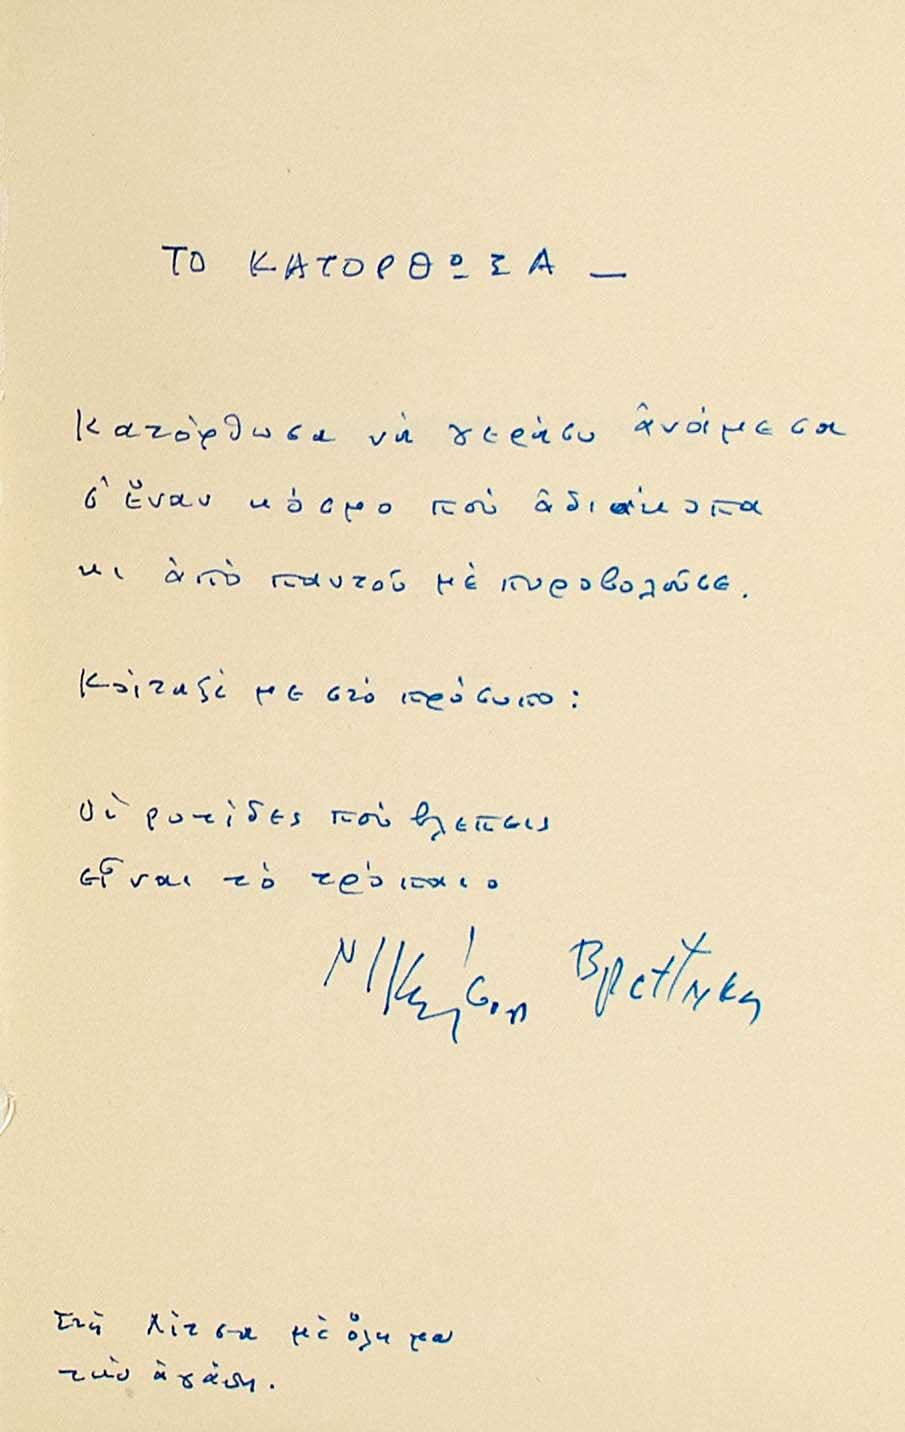 ΤΟ ΚΑΤΟΡΘΩΣΑ —
Κατόρθωσα νὰ γεράσω ἀνάμεσα
σ' ἕναν κόσμο ποὺ ἀδιάκοπα
κι ἀπὸ παντοῦ μὲ πυροβολοῦσε.
Κοίταξέ με στὸ πρόσωπο:
οἱ ρυτίδες ποὺ βλεπεις
εἶναι τὸ τρόπαιο
Νικηφόρο Βρεττάκο
Στὴ Λίτσα μὲ ὅλη μου
τὴν ἀγάπη.